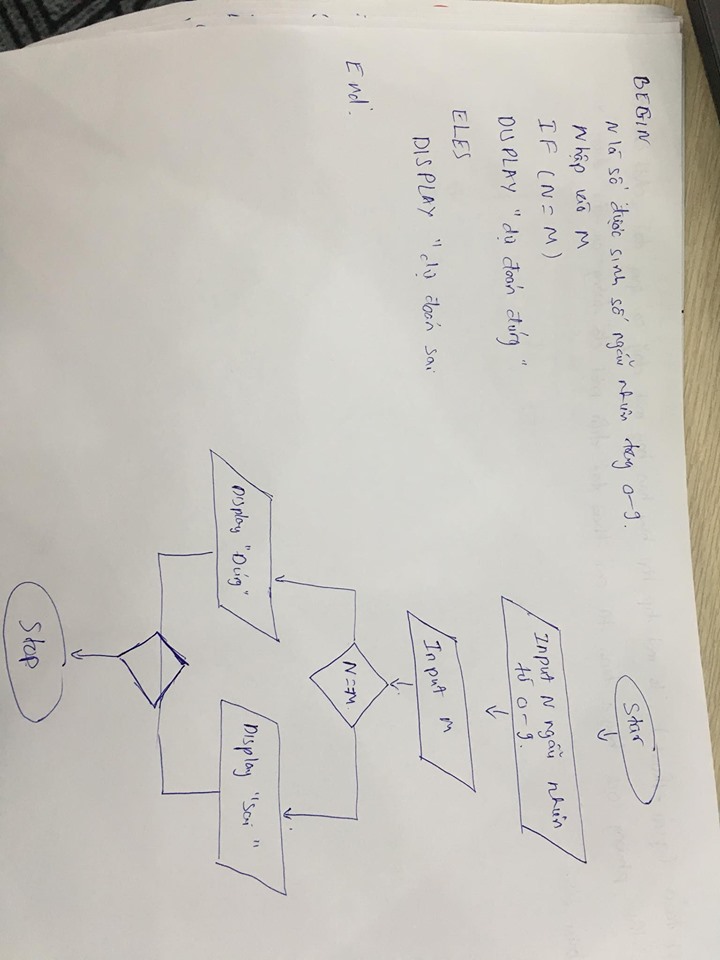 BEGIN
N là số được sinh số ngẫu nhiên từ 0-9.
Nhập vào M
IF (N = M)
DISPLAY "dự đoán đúng"
ELES
DISPLAY "dự đoán sai
End.
Star
Input N ngẫu nhiên
từ 0-9.
Input M
N=M.
Display "Đúng"
Display "Sai"
Stop